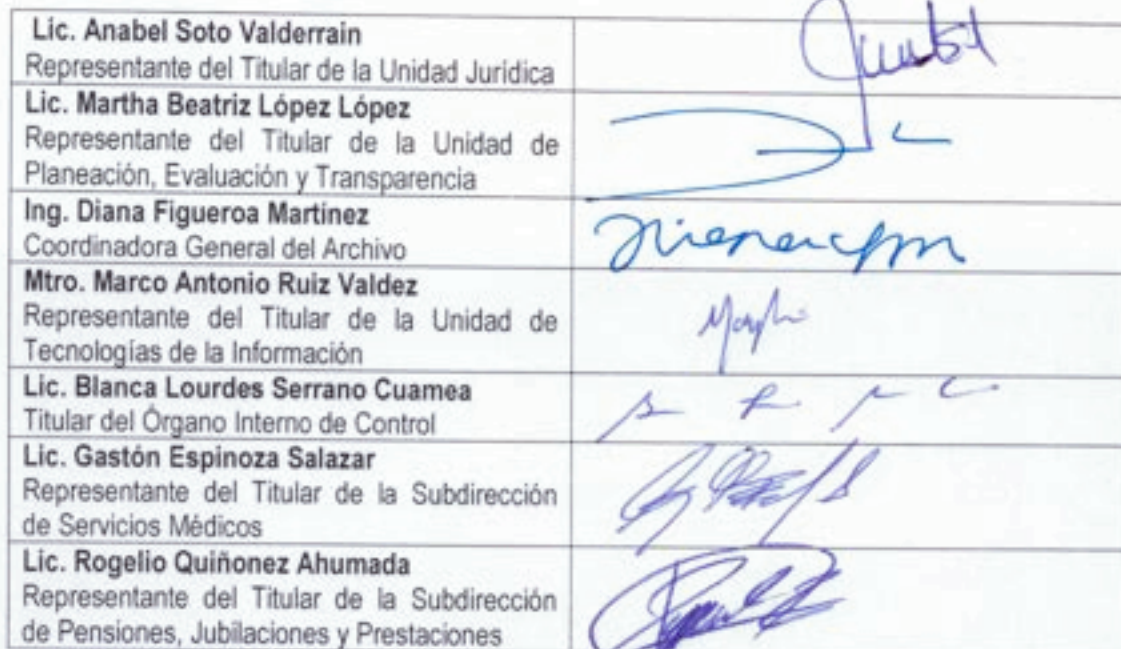 Lic. Anabel Soto Valderrain
Representante del Titular de la Unidad Jurídica
Lic. Martha Beatriz López López
Representante del Titular de la Unidad de
Planeación, Evaluación y Transparencia
Ing. Diana Figueroa Martínez
Coordinadora General del Archivo
Mtro. Marco Antonio Ruiz Valdez
Representante del Titular de la Unidad de
Tecnologías de la Información
Lic. Blanca Lourdes Serrano Cuamea
Titular del Órgano Interno de Control
Lic. Gastón Espinoza Salazar
Representante del Titular de la Subdirección
de Servicios Médicos
Lic. Rogelio Quiñonez Ahumada
Representante del Titular de la Subdirección
de Pensiones, Jubilaciones y Prestaciones